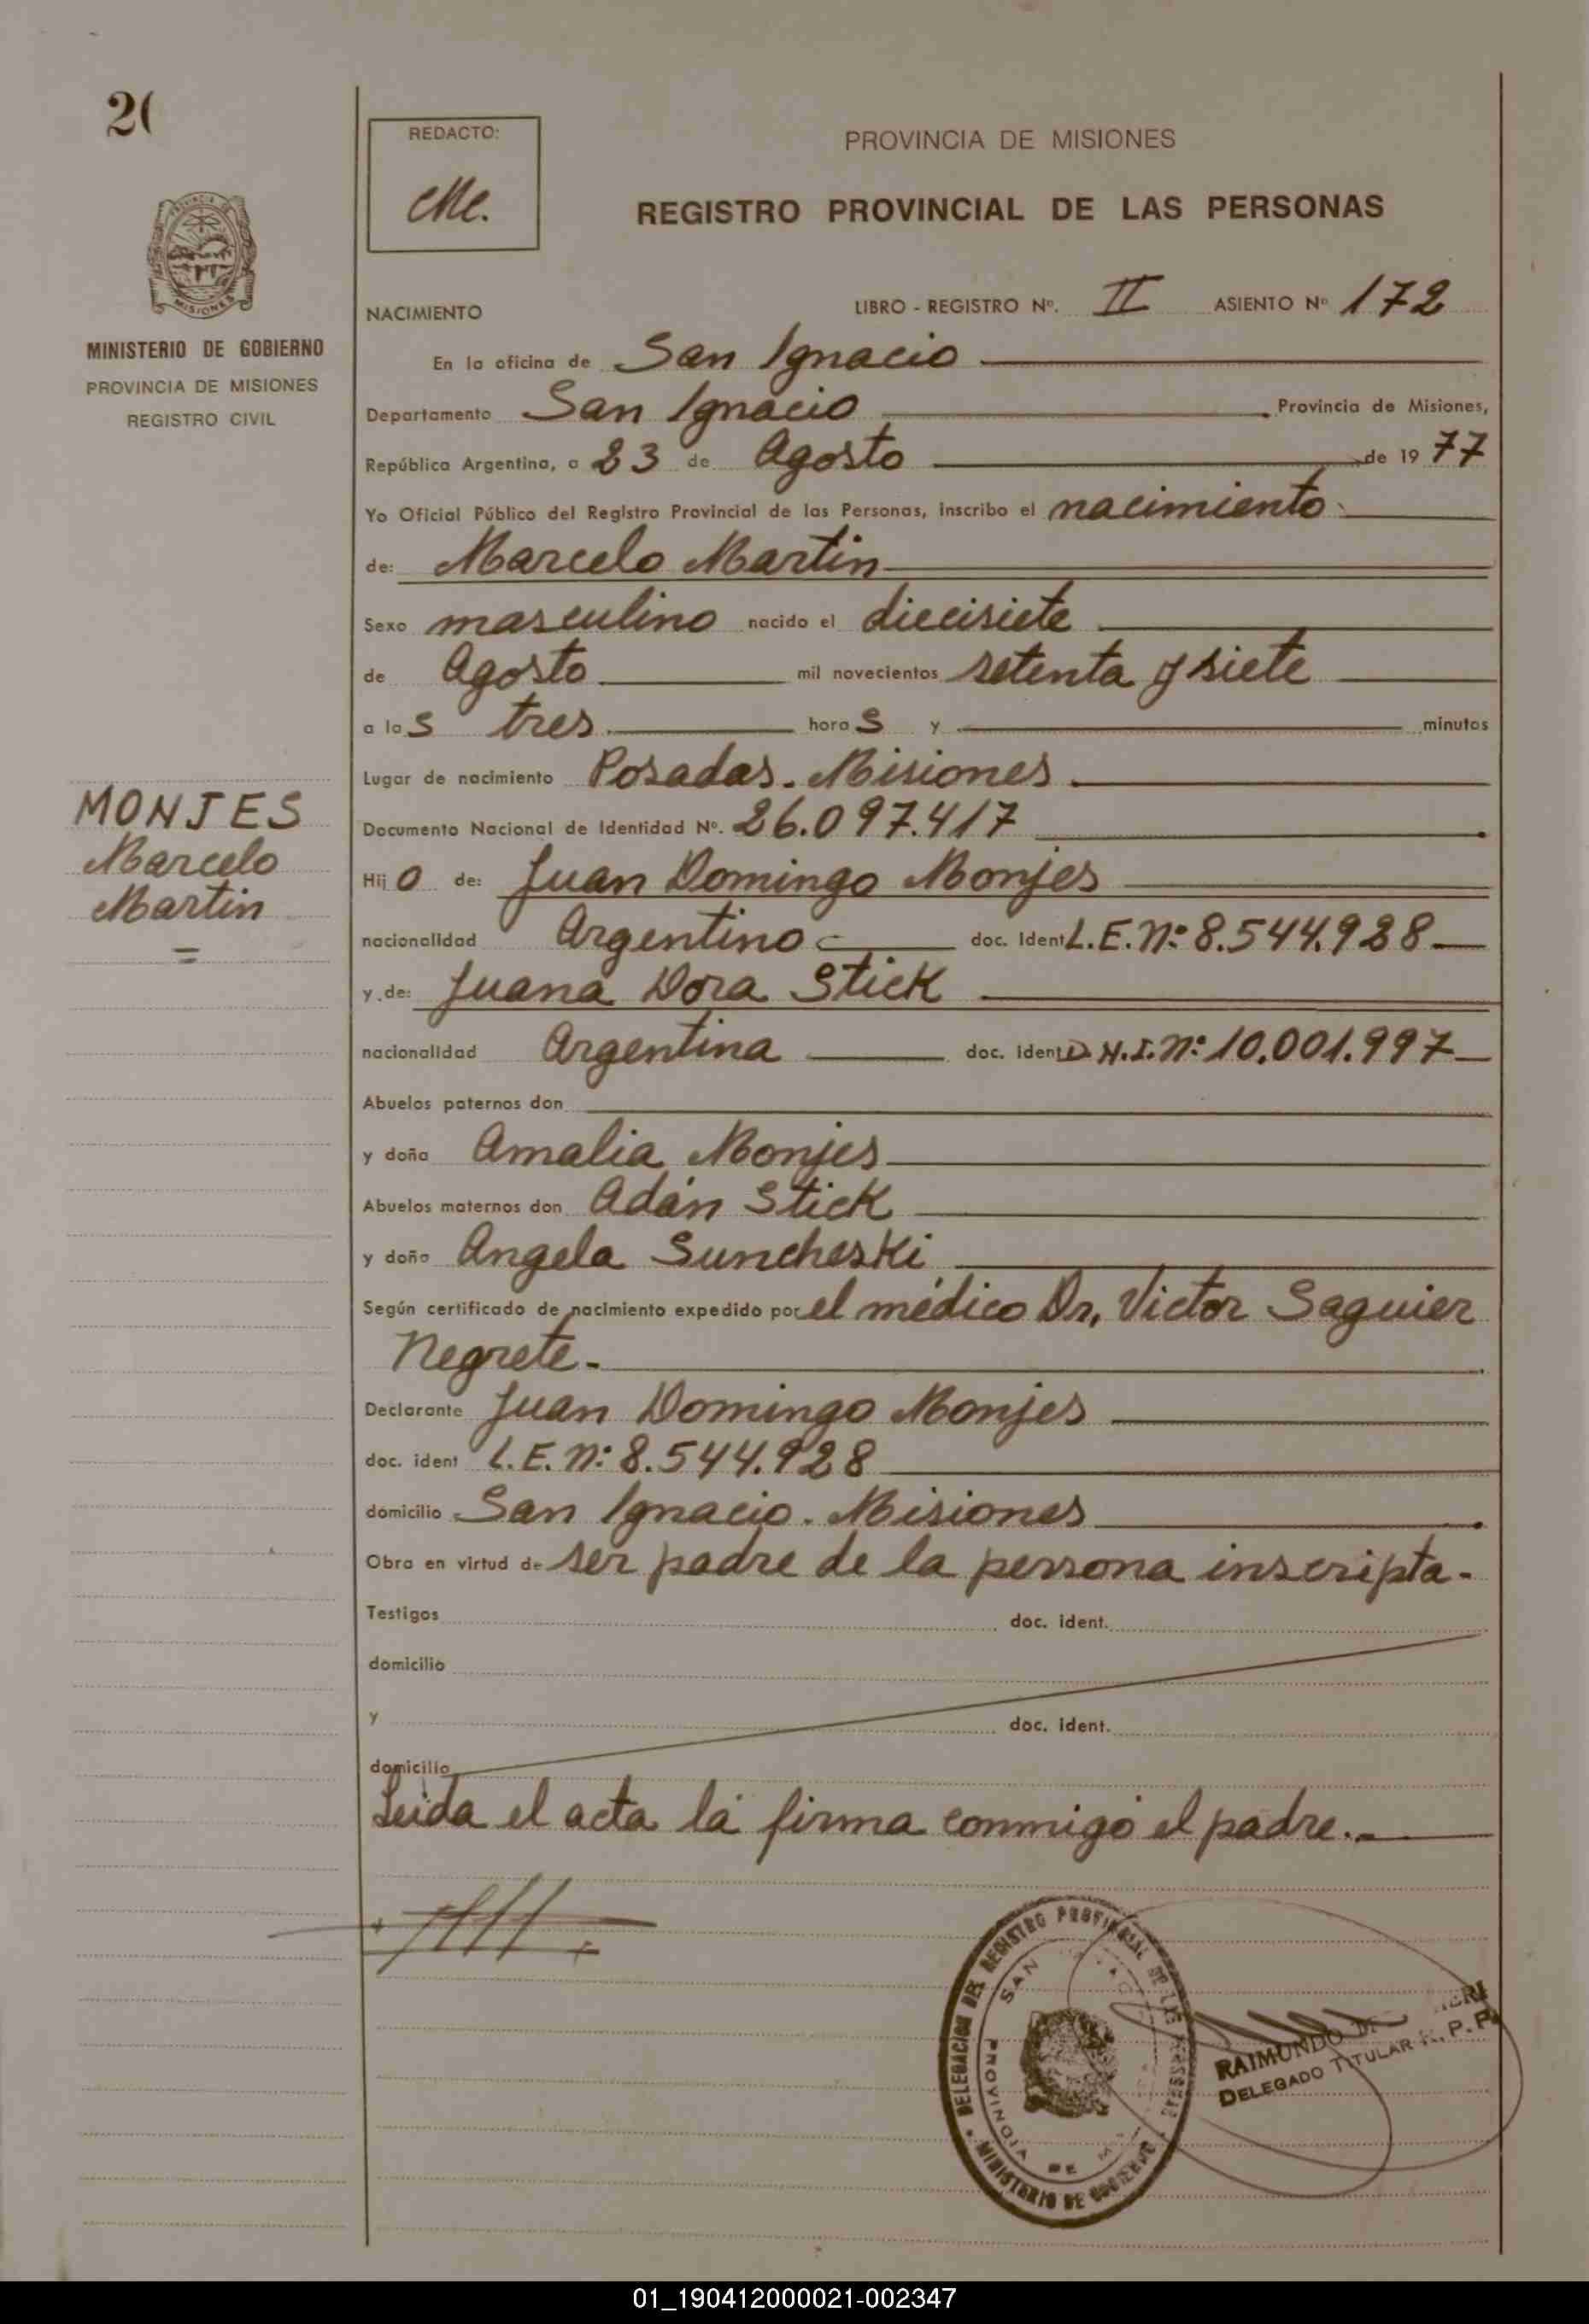 2(
REDACTO:
Me.
PROVINCIA DE MISIONES
REGISTRO PROVINCIAL DE LAS PERSONAS
MISIONES
MINISTERIO DE GOBIERNO
PROVINCIA DE MISIONES
REGISTRO CIVIL
NACIMIENTO LIBRO - REGISTRO Nº. II ASIENTO Nº 172
En la oficina de San Ignacio
Departamento San Ignacio Provincia de Misiones,
República Argentina, a 23 de Agosto de 19 77
Yo Oficial Público del Registro Provincial de las Personas, inscribo el nacimiento
de: Marcelo Martin
Sexo masculino nacido el diecisiete
de Agosto mil novecientos setenta y siete
a las tres horas y minutos
Lugar de nacimiento Posadas. Misiones
MONJES
Marcelo
Martin
Documento Nacional de Identidad Nº. 26.097.417
Hijo de: Juan Domingo Monjes
nacionalidad Argentino doc. ident L.E. Nº 8.544.928
y de: Juana Dora Stick
nacionalidad Argentina doc. ident D.N.I. Nº 10.001.997
Abuelos paternos don
y doña Amalia Monjes
Abuelos maternos don Adán Stick
y doña Angela Suncheski
Según certificado de nacimiento expedido por el médico Dr. Victor Saguier
Negrete.
Declarante Juan Domingo Monjes
doc. ident L.E. Nº 8.544.928
domicilio San Ignacio. Misiones
Obra en virtud de ser padre de la persona inscripta.
Testigos doc. ident.
domicilio
y doc. ident.
domicilio
Leida el acta la firma conmigo el padre.
DELEGACION DEL REGISTRO PROVINCIAL DE LAS PERSONAS
SAN
PROVINCIA DE
MINISTERIO DE GOBIERNO
RAIMUNDO
DELEGADO TITULAR R. P. P.
01_190412000021-002347